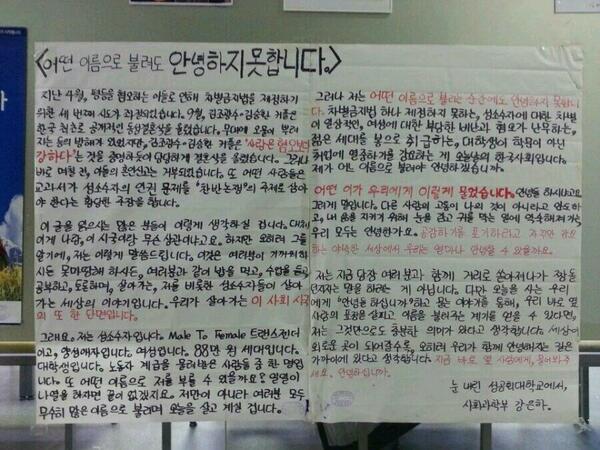 <어떤 이름으로 불려도 안녕하지 못합니다.>
지난 4월, 평등을 혐오하는 이들로 인해 차별금지법을 제정하기
위한 세 번째 시도가 좌절되었습니다. 9월, 김조광수-김승환 커플은
한국 최초로 공개적인 동성결혼식을 올렸습니다. 무대에 오물이 뿌려
지는 등의 방해가 있었지만, 김조광수-김승환 커플은 "사랑은 혐오보다
강하다"는 것을 증명하듯이 당당하게 결혼식을 올렸습니다. 그러나
바로 며칠 전, 이들의 혼인신고는 거부되었습니다. 또 어떤 사람들은
교과서가 성소수자의 인권 문제를 "찬반논쟁"의 주제로 삼아
야 한다는 황당한 주장을 합니다.
이 글을 읽으시는 많은 분들이 이렇게 생각하실 겁니다. 대체
이게 나랑, 이 시국이랑 무슨 상관이냐고요. 하지만 오히려 그들
에게, 저는 이렇게 말씀드립니다. 이것은 여러분이 기꺼워하
시든 못마땅해 하시든, 여러분과 같이 밥을 먹고, 수업을 듣고
공부하고, 토론하며, 살아가는, 저를 비롯한 성소수자들이 살아
가는 세상의 이야기입니다. 우리가 살아가는 이 사회 시국
의 또 한 단면입니다.
그래요. 저는 성소수자입니다. Male To Female 트랜스젠더
이고, 양성애자입니다. 여성입니다. 88만 원 세대입니다.
대학생입니다. 노동자 계급을 물려받은 사람들 중 한 명입
니다. 또 어떤 이름으로 저를 부를 수 있을까요? 일일이
나열을 하자면 끝이 없겠지요. 저만이 아니라 여러분 모두
무수히 많은 이름으로 불리며 오늘을 살고 계실 겁니다.
그러나 저는 어떤 이름으로 불리는 순간에도 안녕하지 못합니
다. 차별금지법 하나 제정하지 못하는, 성소수자에 대한 차별
이 일상적인, 여성에 대한 부당한 비난과 혐오가 난무하는,
젊은 세대를 봉으로 취급하는, 대학생이 학문이 아닌
취업에 열중하기를 강요하는 게 오늘날의 한국사회입니다.
제가 어느 이름으로 불려야 안녕하겠습니까.
어떤 이가 우리에게 이렇게 물었습니다. 안녕들 하시냐고요.
그렇게 말입니다. 다른 사람의 고통이 나의 것이 아니라고 안도하
고, 내 몸을 지키기 위해 눈을 감고 귀를 막는 일에 익숙해져가는
우리 모두는 안녕한가요. 공감하기를 포기하라고, 자꾸만 강요
하는 야속한 세상에서 우리는 얼마나 안녕할 수 있을까요.
저는 지금 당장 여러분과 함께 거리로 쏟아져나가 짱돌
던지자는 말을 하려는 게 아닙니다. 다만 오늘을 사는 우리
에게 "안녕들 하십니까?"하고 묻는 여기를 통해, 우리 바로 옆
사람의 표정을 살피고, 이름을 불러주는 계기를 얻을 수 있다면,
저는 그것만으로도 충분한 의미가 있다고 생각합니다. 세상이
외로운 곳이 되어갈수록, 오히려 우리가 함께 안녕하자는 길은
가까이에 있다고 생각합니다. 지금 바로 옆 사람에게, 물어봐주
세요. 안녕하십니까.
눈 내린 성공회대학교에서,
사회과학부 강은하.